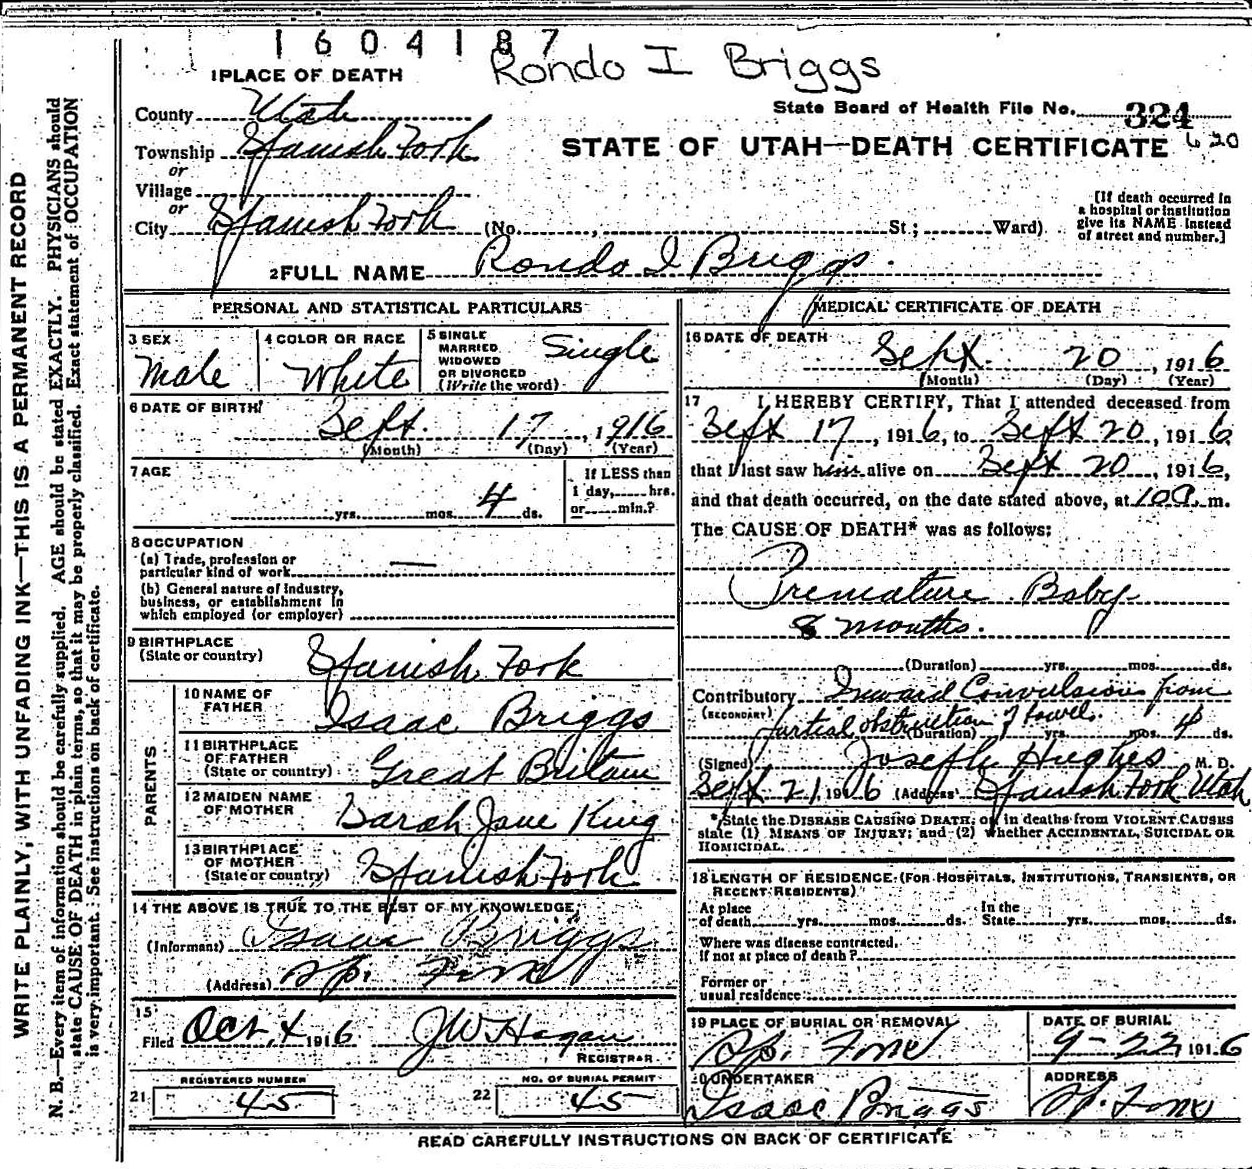 1604187
Rondo I Briggs
1 PLACE OF DEATH
State Board of Health File No. 324
County Utah
STATE OF UTAH—DEATH CERTIFICATE 620
Township Spanish Fork
or
Village
or
City Spanish Fork (No. , St.; Ward)
[If death occurred in
a hospital or institution
give its NAME instead
of street and number.]
2 FULL NAME Rondo I Briggs.
PERSONAL AND STATISTICAL PARTICULARS
3 SEX
Male
4 COLOR OR RACE
White
5 SINGLE
MARRIED
WIDOWED
OR DIVORCED
(Write the word)
Single
6 DATE OF BIRTH
Sept. 17, 1916
(Month) (Day) (Year)
7 AGE
yrs. mos. 4 ds.
If LESS than
1 day, hrs.
or min.?
8 OCCUPATION
(a) Trade, profession or
particular kind of work —
(b) General nature of industry,
business, or establishment in
which employed (or employer)
9 BIRTHPLACE
(State or country) Spanish Fork
PARENTS
10 NAME OF
FATHER Isaac Briggs
11 BIRTHPLACE
OF FATHER
(State or country) Great Britain
12 MAIDEN NAME
OF MOTHER Sarah Jane King
13 BIRTHPLACE
OF MOTHER
(State or country) Spanish Fork
14 THE ABOVE IS TRUE TO THE BEST OF MY KNOWLEDGE
(Informant) Isaac Briggs
(Address) Sp. Fork
15
Filed Oct 4 1916 J W Hagan
REGISTRAR
21 REGISTERED NUMBER
45
22 NO. OF BURIAL PERMIT
45
MEDICAL CERTIFICATE OF DEATH
16 DATE OF DEATH
Sept. 20, 1916
(Month) (Day) (Year)
17 I HEREBY CERTIFY, That I attended deceased from
Sept 17, 1916, to Sept 20, 1916,
that I last saw him alive on Sept 20, 1916,
and that death occurred, on the date stated above, at 10 a. m.
The CAUSE OF DEATH* was as follows:
Premature Baby
8 months.
(Duration) yrs. mos. ds.
Contributory Inward Convulsions from
(SECONDARY) partial obstruction of bowel.
(Duration) yrs. mos. 4 ds.
(Signed) Joseph Hughes M. D.
Sept 21, 1916 (Address) Spanish Fork Utah
*State the DISEASE CAUSING DEATH, or in deaths from VIOLENT CAUSES
state (1) MEANS OF INJURY; and (2) whether ACCIDENTAL, SUICIDAL OR
HOMICIDAL.
18 LENGTH OF RESIDENCE (FOR HOSPITALS, INSTITUTIONS, TRANSIENTS, OR
RECENT RESIDENTS)
At place
of death yrs. mos. ds.
In the
State yrs. mos. ds.
Where was disease contracted.
If not at place of death?
Former or
usual residence
19 PLACE OF BURIAL OR REMOVAL
Sp. Fork
DATE OF BURIAL
9-22 1916
20 UNDERTAKER
Isaac Briggs
ADDRESS
Sp. Fork
READ CAREFULLY INSTRUCTIONS ON BACK OF CERTIFICATE
WRITE PLAINLY, WITH UNFADING INK—THIS IS A PERMANENT RECORD
N. B.—Every item of information should be carefully supplied. AGE should be stated EXACTLY. PHYSICIANS should
state CAUSE OF DEATH in plain terms, so that it may be properly classified. Exact statement of OCCUPATION
is very important. See instructions on back of certificate.